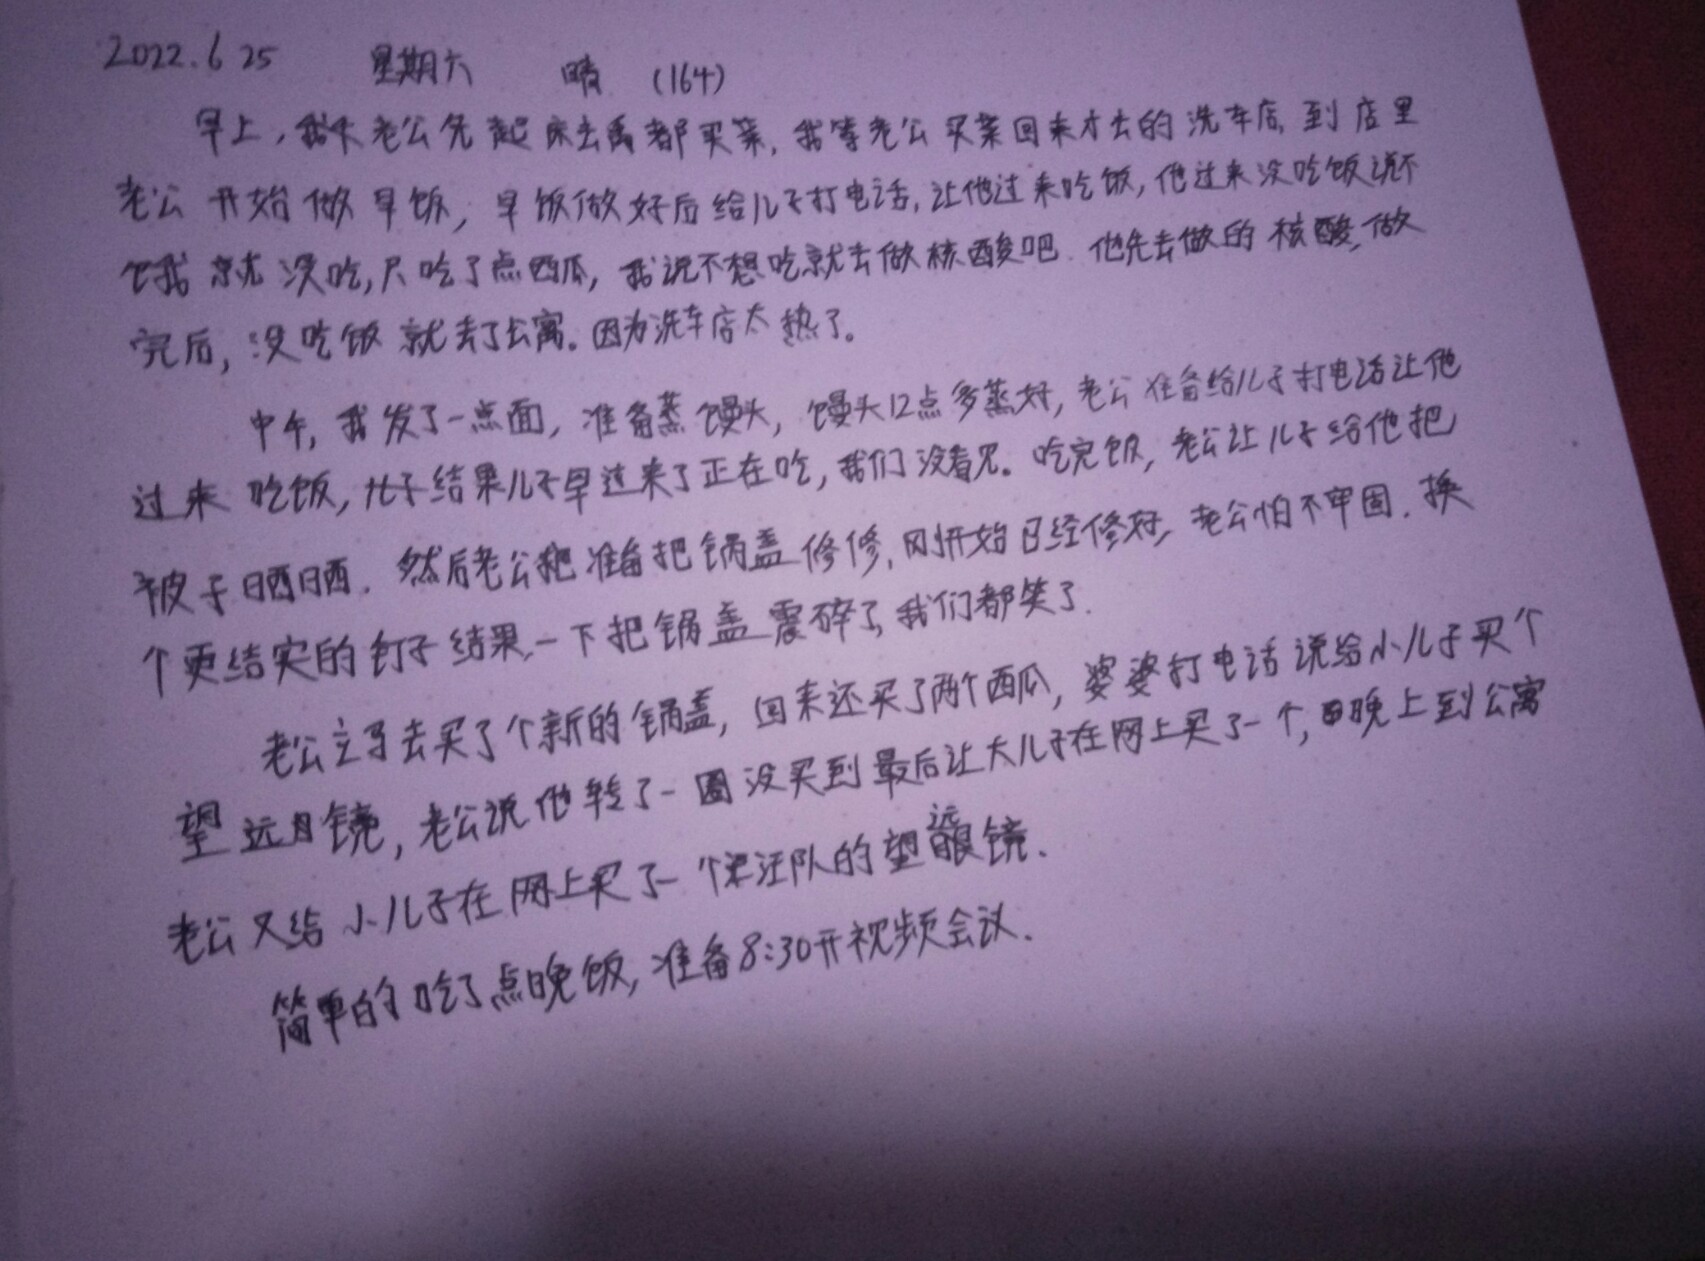 2022.6 25 星期六 晴 (164)
早上，老公先起床去禹都买菜，我等老公买菜回来才去的洗车店，到店里
老公开始做早饭，早饭做好后给儿子打电话，让他过来吃饭，他过来没吃饭说不
我就没吃，只吃了点西瓜，我说不想吃就去做核酸吧．他先去做的核酸，做
完后，没吃饭就去了公寓。因为洗车店太热了。
中午，我发了一点面，准备蒸馒头，馒头12点多蒸好，老公准备给儿子打电话让他
过来吃饭，结果儿子早过来了正在吃，我们没看见。吃完饭，老公让儿子给他把
被子晒晒．然后老公准备把锅盖修修，刚开始已经修好，老公怕不牢固．换
个更结实的钉子结果，一下把锅盖震碎了，我们都笑了．
老公立马去买了个新的锅盖，回来还买了两个西瓜，婆婆打电话说给小儿子买个
望远镜，老公说他转了一圈没买到最后让大儿子在网上买了一个，晚上到公寓
老公又给小儿子在网上买了一个汪汪队的望远镜．
简单的吃了点晚饭，准备8:30开视频会议．